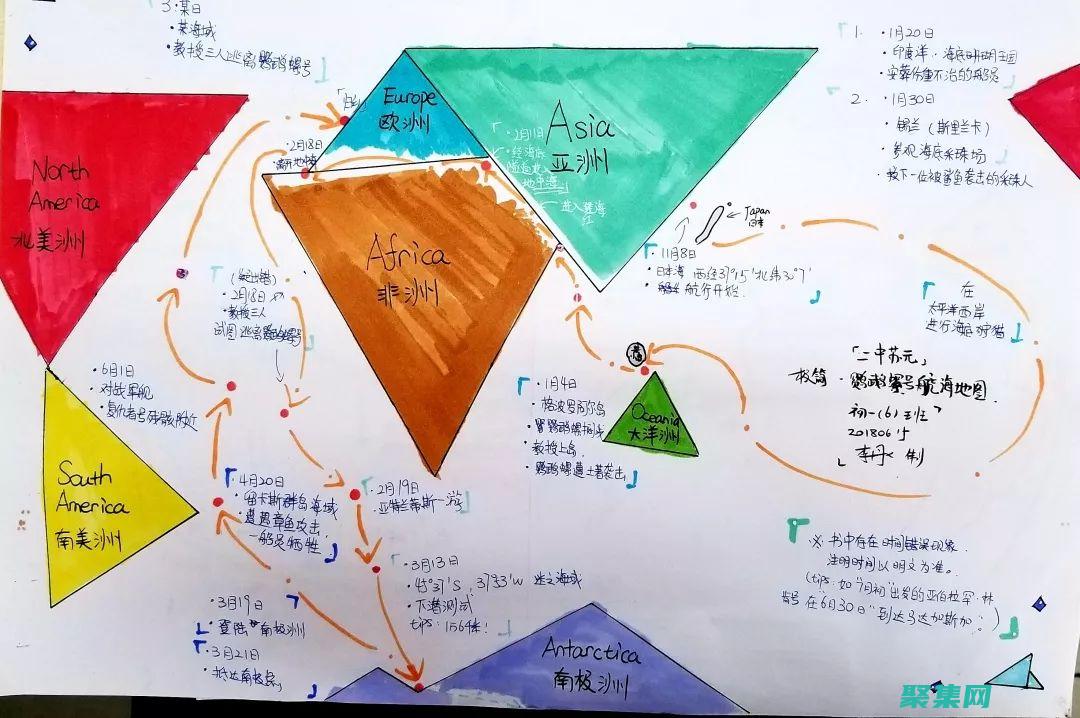 3. 某日
· 某海域
· 教授三人逃离鹦鹉螺号
1. · 1月20日
· 印度洋. 海底珊瑚王国
· 安葬伤重不治的船员
2. · 1月30日
· 锡兰（斯里兰卡）
· 参观海底采珠场
· 救下一位被鲨鱼袭击的采珠人
Europe
欧洲
Asia
亚洲
· 2月11日
· 经海底
隧道进入
地中海
进入红海
· 2月18日
离开地中海
North
America
北美洲
Africa
非洲
Japan
日本
· 11月8日
· 日本海
航行开始.
在
太平洋西岸
进行海底狩猎
· 2月18日
· 教授三人
试图逃离鹦鹉螺号
· 6月1日
· 对战军舰
· 复仇者号残骸附近
「二中苏元」
校简 · 鹦鹉螺号航海地图
初一（6）班
20180615
李丹 制
· 1月4日
· 格波罗阿尔岛
· 鹦鹉螺搁浅
· 教授上岛.
· 鹦鹉螺遭土著袭击
Oceania
大洋洲
South
America
南美洲
· 4月20日
· 留卡斯群岛海域
· 遭遇章鱼攻击
一船员牺牲
· 2月19日
· 亚特兰蒂斯一游
· 3月13日
· 45°37'S , 37°33'W
· 下潜测试
tips: 1564米!
· 3月19日
· 登陆 南极洲
· 3月21日
· 抵达南极点
※ 书中存在时间错误现象.
注明时间以明文为准。
(tips: 如“7月初”出发的亚伯拉罕·林
肯号在“6月30日”到达马达加斯加。)
Antarctica
南极洲
聚集网